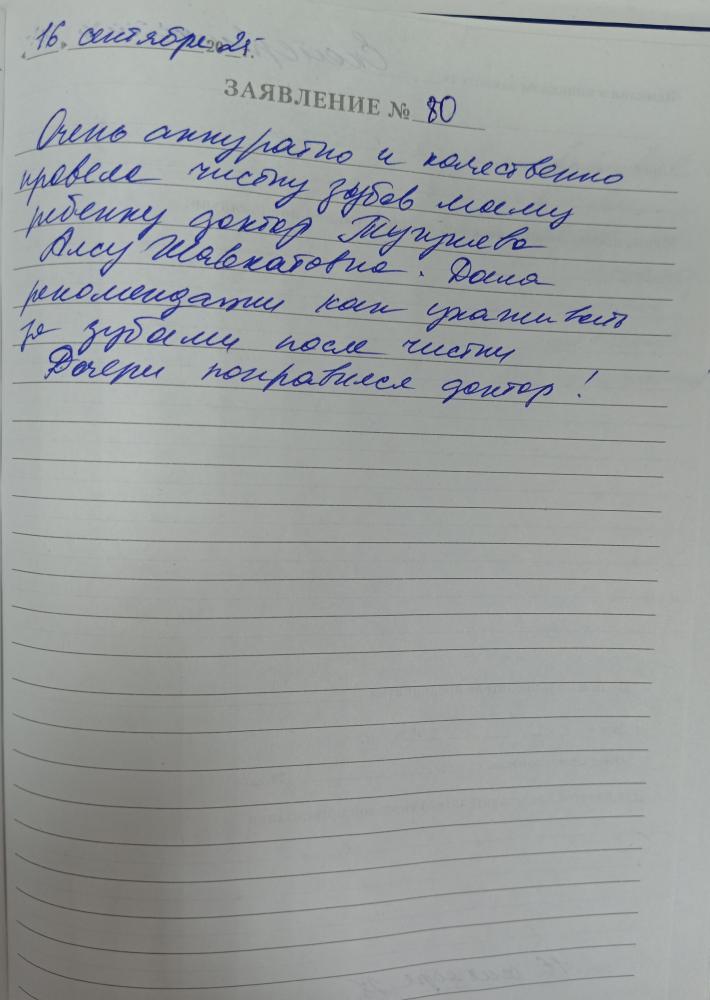 "16" сентября 2025 г.
ЗАЯВЛЕНИЕ № 80
Очень аккуратно и качественно
провела чистку зубов моему
ребенку доктор
Алсу Шавкатовна. Дала
рекомендации как ухаживать
за зубами после чистки
Дочери понравился доктор!